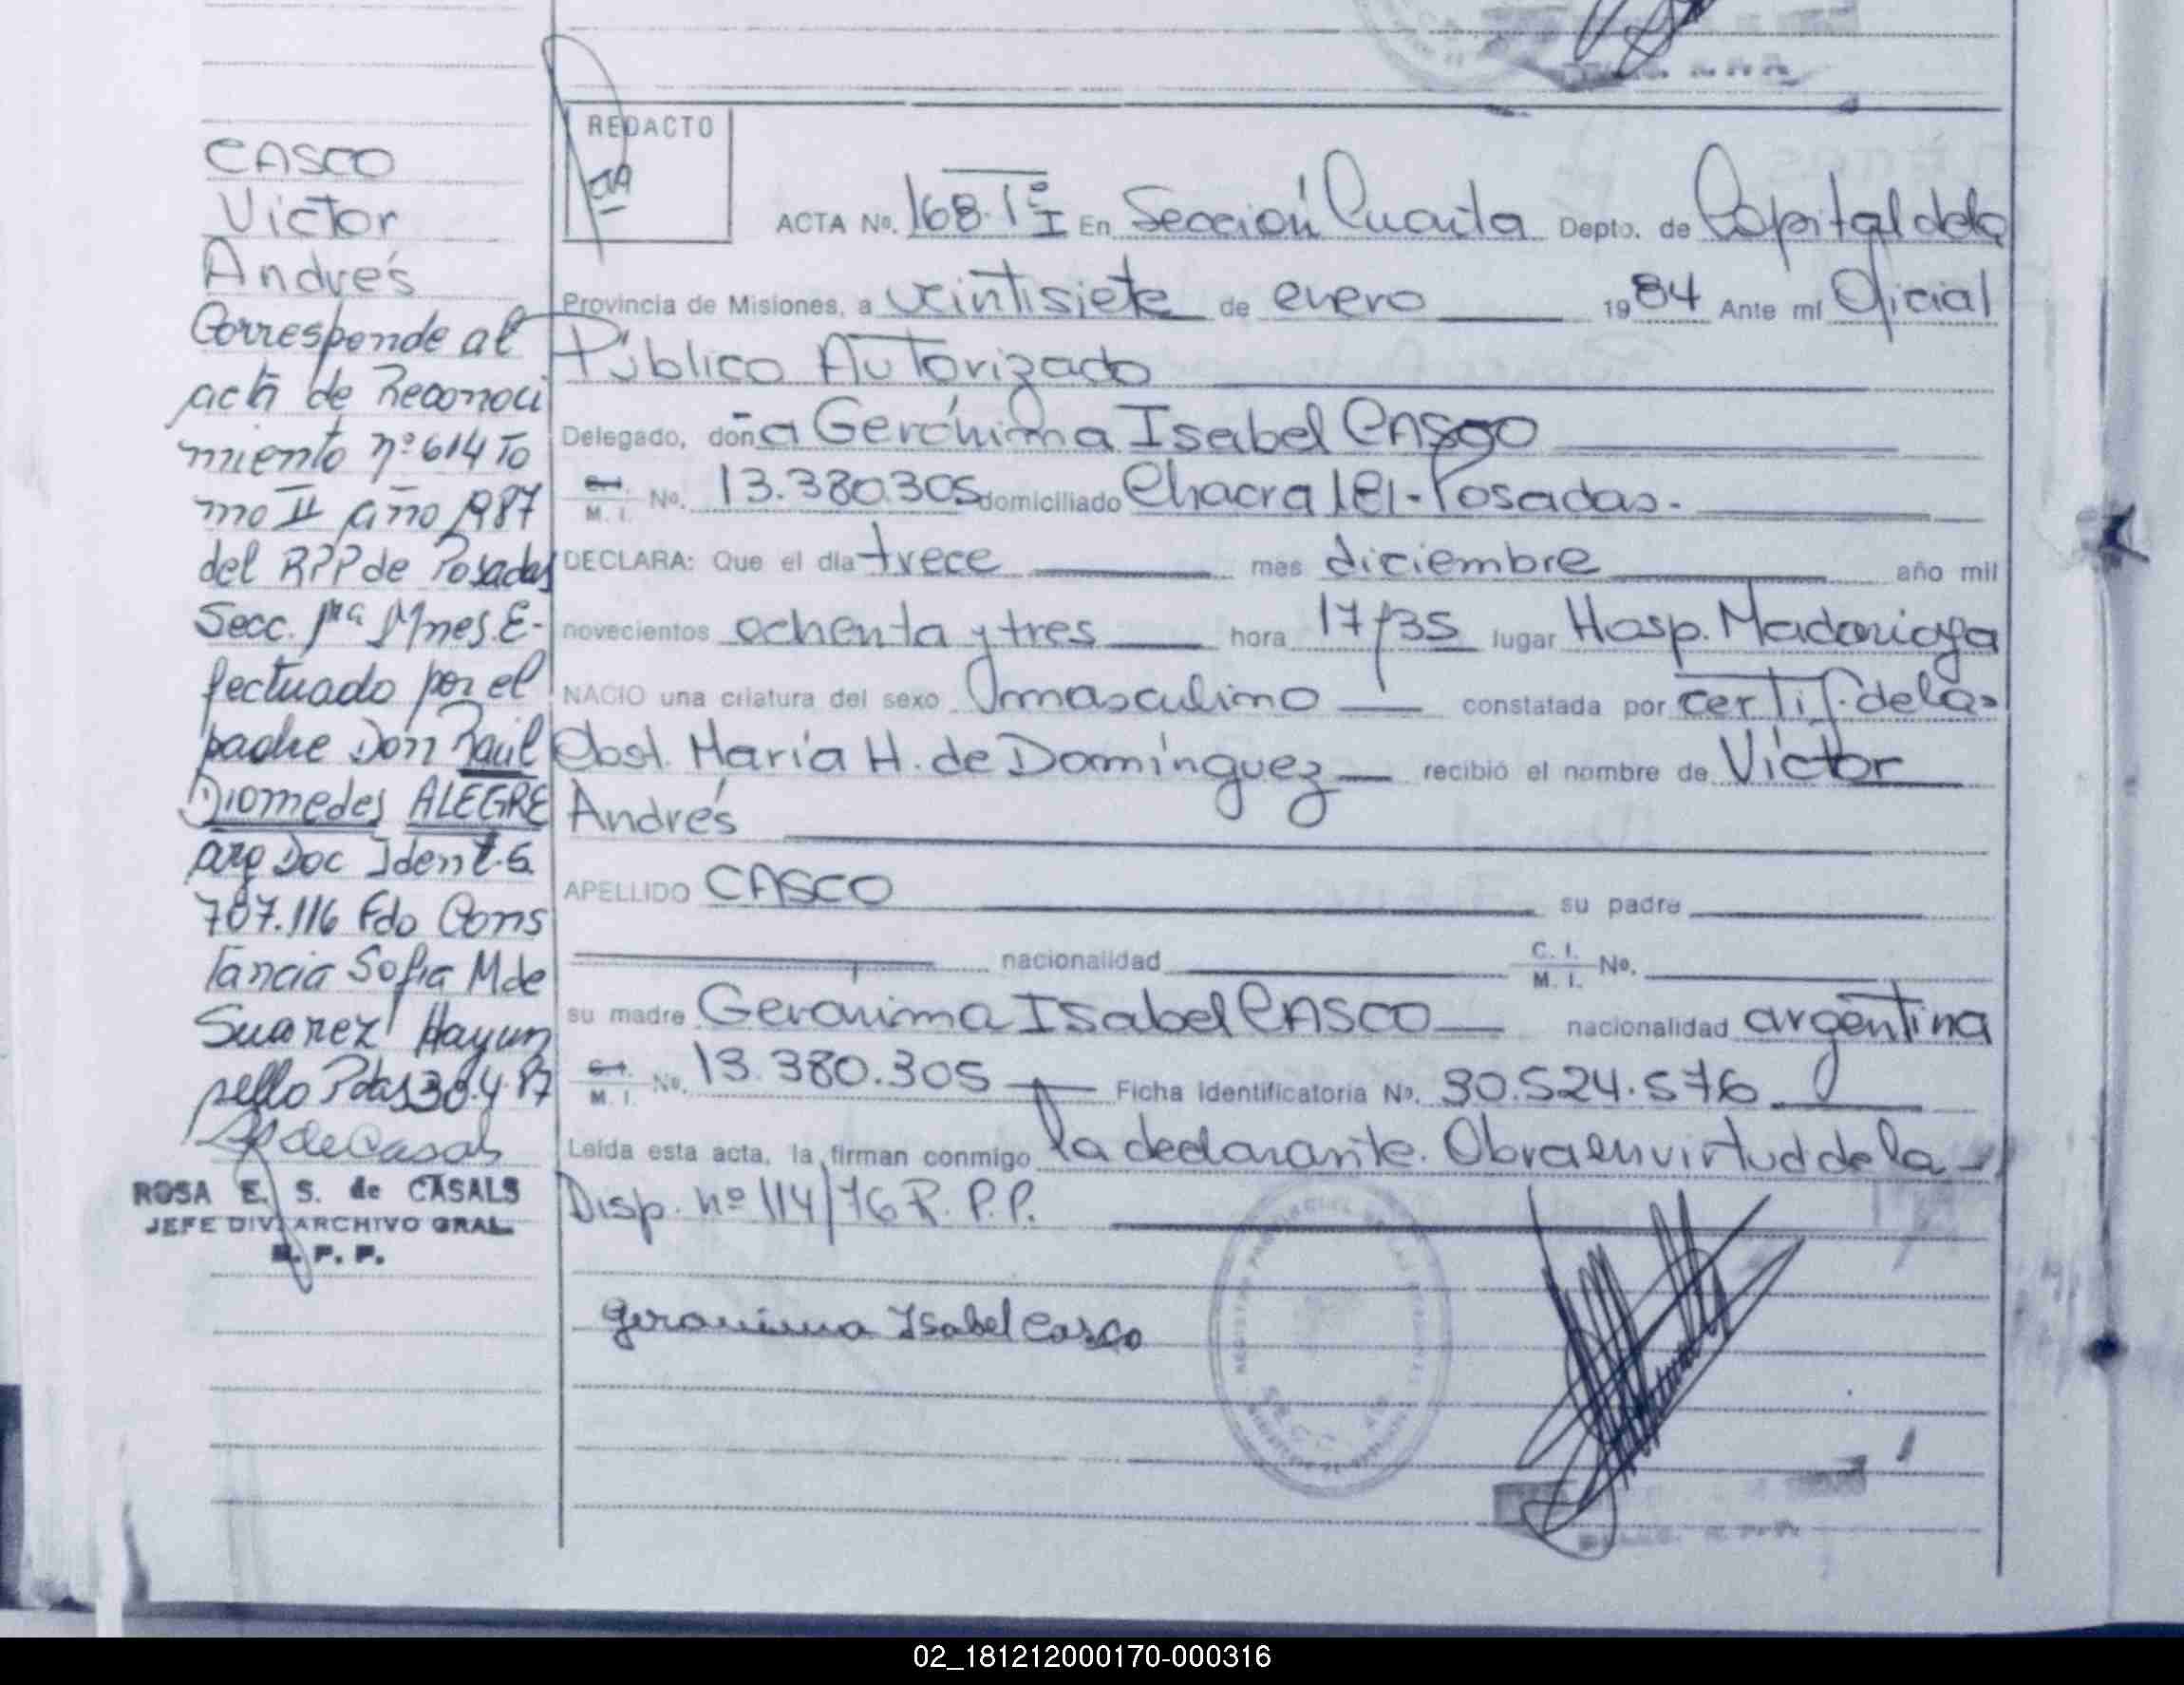 CASCO
Victor
Andrés
Corresponde al
acta de Reconoci
miento nº 614 To
mo II año 1987
del RPP de Posadas
Secc. 1ra Mnes. E-
fectuado por el
padre Don Raúl
Diomedes ALEGRE
arg Doc Ident. 6.
707.116 Fdo Cons
tancia Sofia M de
Suarez Hayun
sello Pdas 30.4.87
ROSA E. S. de CASALS
JEFE DIV. ARCHIVO GRAL.
R. P. P.
REDACTO
ACTA Nº. 168. Tº I En Sección Cuarta Depto. de Capital de la
Provincia de Misiones, a veintisiete de enero 1984 Ante mí Oficial
Público Autorizado
Delegado, doña Gerónima Isabel CASCO
C.I. M. I. No. 13.380.305 domiciliado Chacra 181-Posadas.-
DECLARA: Que el día trece mes diciembre año mil
novecientos ochenta y tres hora 17/35 lugar Hosp. Madariaga
NACIO una criatura del sexo masculino constatada por certif. de la
Obst. María H. de Domínguez recibió el nombre de Víctor
Andrés
APELLIDO CASCO su padre
nacionalidad C. I. M. I. No.
su madre Geronima Isabel CASCO nacionalidad argentina
C.I. M. I. No. 13.380.305 Ficha Identificatoria No. 30.524.576
Leída esta acta, la firman conmigo la declarante. Obra en virtud de la
Disp. nº 114/76 R. P.P.
Geronima Isabel Casco
02_181212000170-000316